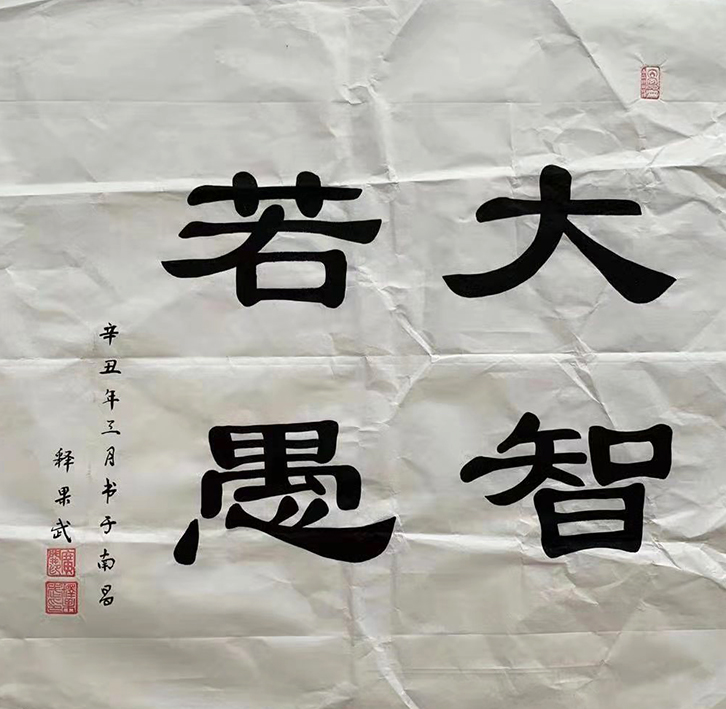 大智
若愚
辛丑年三月书于南昌
释果武